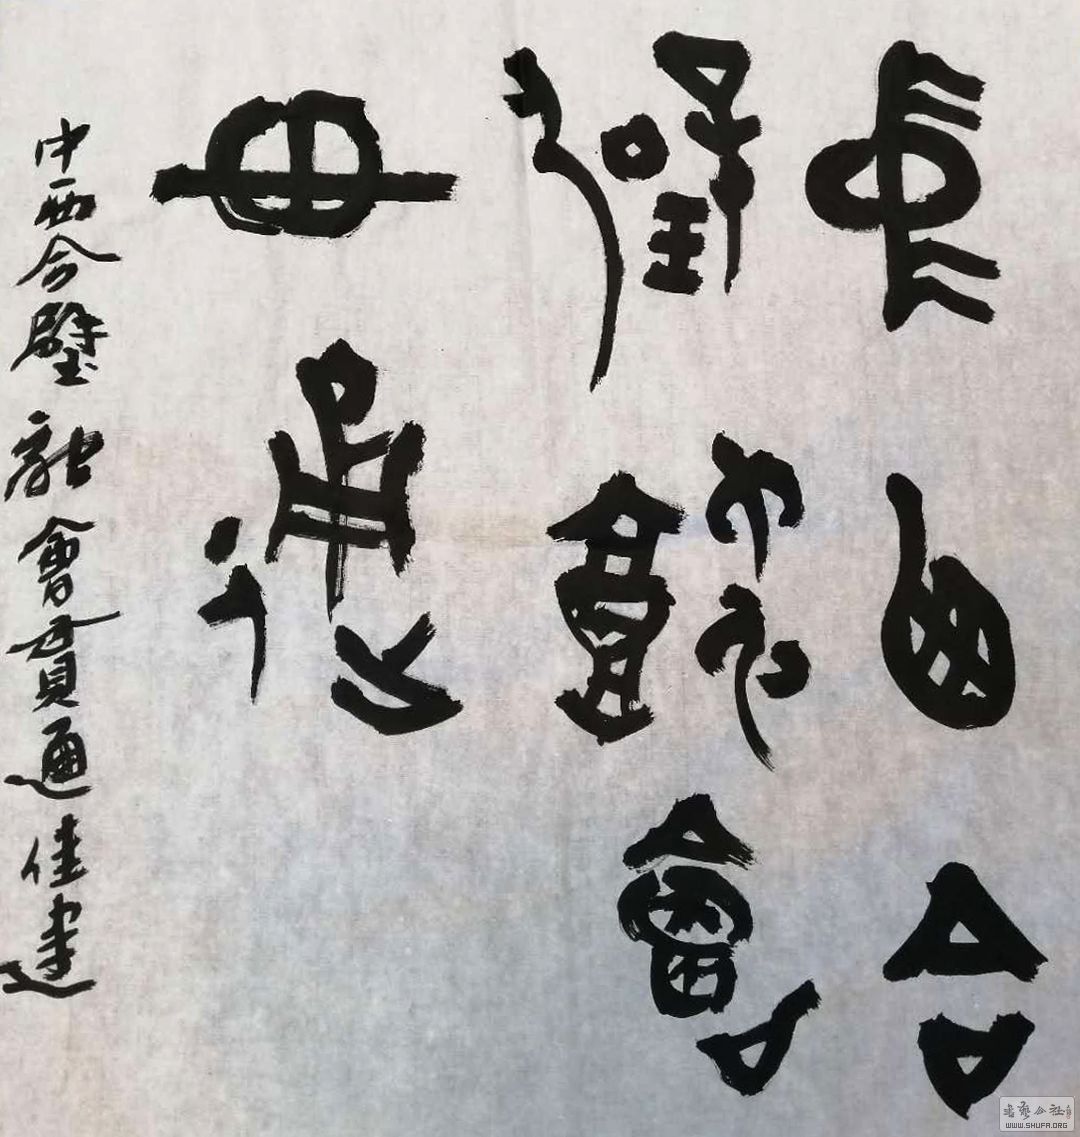 中西合
璧融會
毌通
中西合璧融會貫通佳建
书艺公社
WWW.SHUFA.ORG